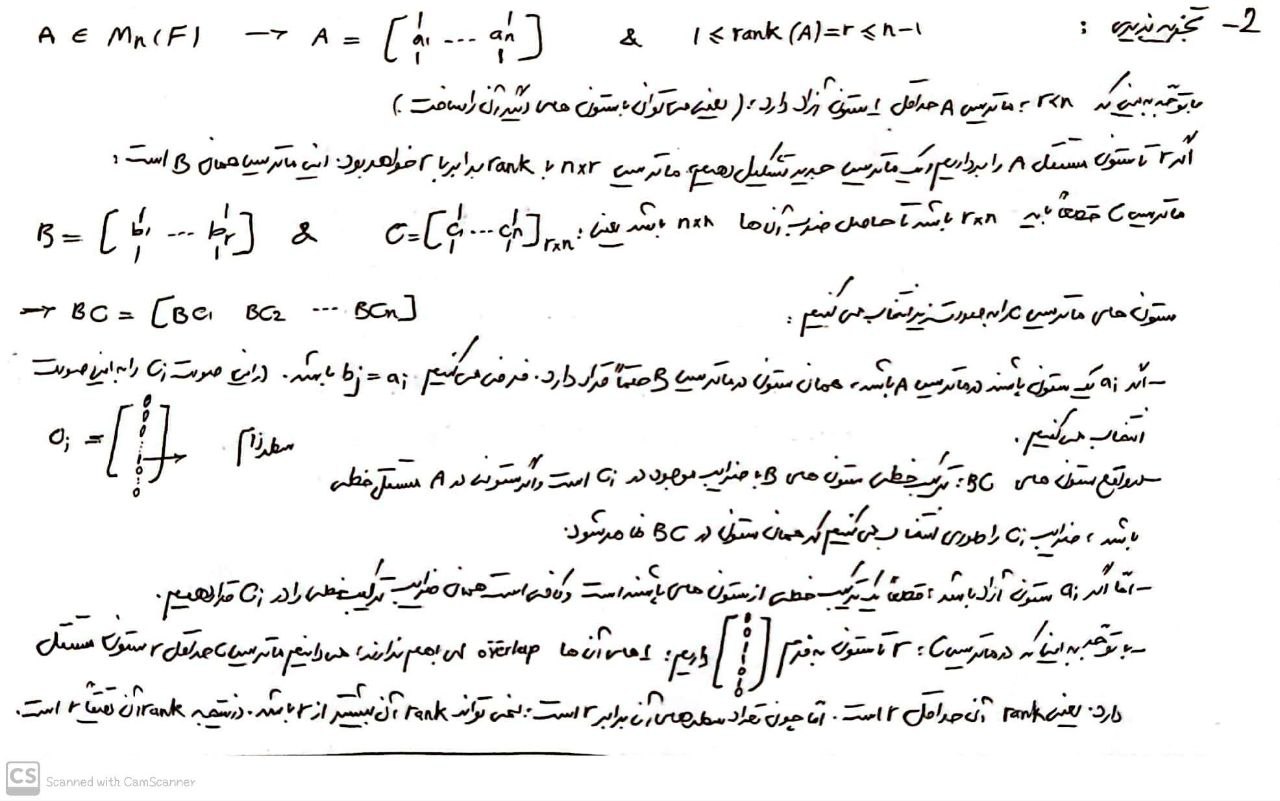 2- تجزیه پذیری :
A ∈ Mn(F) → A = [a1 ... an] & 1 ≤ rank(A)=r ≤ n-1
با توجه به اینکه r<n ؛ ماتریس A حداقل 1 ستون آزاد دارد ؛ (یعنی می‌توان با ستون های دیگر آن را ساخت.)
اگر r تا ستون مستقل A را برداریم و یک ماتریس جدید تشکیل دهیم، ماتریس n×r با rank برابر با r خواهد بود. این ماتریس همان B است؛
ماتریس C قطعاً باید r×n باشد تا حاصل ضرب آن ها n×n باشد یعنی :
B = [b1 ... br] & C = [c1 ... cn]r×n
→ BC = [BC1 BC2 ... BCn]
ستون های ماتریس C را به صورت زیر انتخاب می کنیم :
- اگر ai یک ستون باشد در ماتریس A باشد، همان ستون در ماتریس B حتماً قرار دارد. فرض می کنیم bj = ai باشد. در این صورت Ci را به این صورت
انتخاب می کنیم.
Ci = [0 0 0 ⋮ 1 0 ⋮ 0] → سطر j ام
در واقع ستون های BC ؛ ترکیب خطی ستون های B با ضرایب موجود در Ci است و اگر ستونی در A مستقل خطی
باشد ، ضرایب Ci را طوری انتخاب می کنیم که همان ستون در BC ظاهر شود.
- اما اگر ai ستون آزاد باشد ؛ قطعاً یک ترکیب خطی از ستون های است و کافی است همان ضرایب ترکیب خطی را در Ci قرار دهیم.
- با توجه به اینکه در ماتریس C ؛ r تا ستون به فرم [0 0 ⋮ 1 ⋮ 0 0] داریم ؛ 1 های آن ها overlap ای با هم ندارند؛ می دانیم ماتریس C حداقل r ستون مستقل
دارد. یعنی rank آن حداقل r است. اما چون تعداد سطرهای آن برابر r است ؛ نمی تواند rank آن بیشتر از r باشد. در نتیجه rank آن دقیقاً r است.
CS Scanned with CamScanner